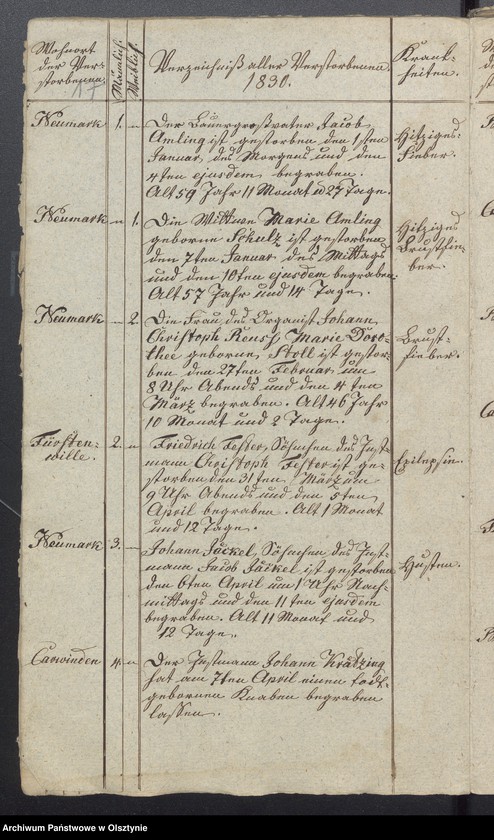 Wohnort
der Ver-
storbenen.
17
Männlich.
Weiblich.
Verzeichniß aller Verstorbenen.
1830.
Krank-
heiten.
Neumark
1.
Der Bauergroßvater Jacob
Amling ist gestorben den 1sten
Januar des Morgens und den
4ten ejusdem begraben.
Alt 59 Jahr 11 Monat u 27 Tage.
Hitziges
Fieber.
Neumark
1.
Die Wittwe Marie Amling
geborne Schulz ist gestorben
den 7ten Januar des Mittags
und den 10ten ejusdem begraben.
Alt 57 Jahr und 14 Tage.
Hitziges
Brustfie-
ber.
Neumark
2.
Die Frau des Organist Johann
Christoph Marie Doro-
thee geborne Stoll ist gestor-
ben den 27ten Februar um
8 Uhr Abends und den 4ten
März begraben. Alt 46 Jahr
10 Monat und 2 Tage.
Brust-
fieber.
Fürsten-
wille.
2.
Friedrich Fester, Söhnchen des Inst-
mann Christoph Fester ist ge-
storben den 31ten März um
9 Uhr Abends und den 5ten
April begraben. Alt 1 Monat
und 12 Tage.
Epilepsie.
Neumark
3.
Johann Jäckel, Söhnchen des Inst-
mann Jacob Jäckel ist gestorben
den 6ten April um 1 Uhr Nach-
mittags und den 11ten ejusdem
begraben. Alt 11 Monat und
12 Tage.
Husten.
Carwinden
4.
Der Instmann Johann Krätzing
hat am 7ten April einen todt-
gebornen Knaben begraben
lassen.
Archiwum Państwowe w Olsztynie